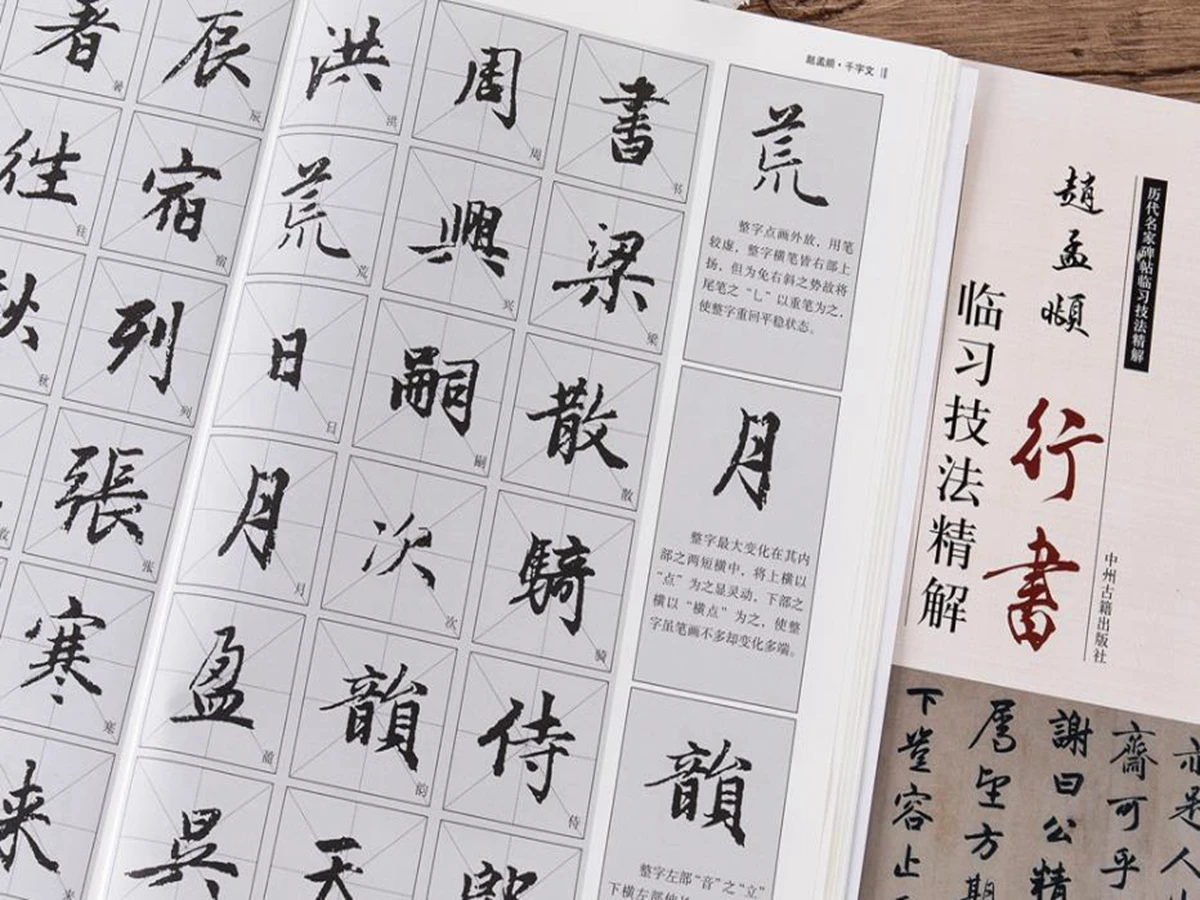 赵孟頫·千字文
書
书
梁
梁
散
散
騎
骑
侍
侍
周
周
興
兴
嗣
嗣
次
次
韻
韵
天
洪
洪
荒
荒
日
日
月
月
盈
盈
昃
辰
辰
宿
宿
列
列
張
张
寒
寒
来
来
暑
暑
往
往
秋
秋
收
荒
整字点画外放，用笔
较虚，整字横笔皆右部上
扬，但为免右斜之势故将
尾笔之“乚”以重笔为之，
使整字重回平稳状态。
月
整字最大变化在其内
部之两短横中，将上横以
“点”为之显灵动，下部之
横以“横点”为之，使整
字虽笔画不多却变化多端。
韻
整字左部“音”之“立”
下横左部伸长
历代名家碑帖临习技法精解
趙孟頫
行書
临习技法精解
中州古籍出版社
亦是人
齋可乎
謝曰公精
屬望方期
下豈容止